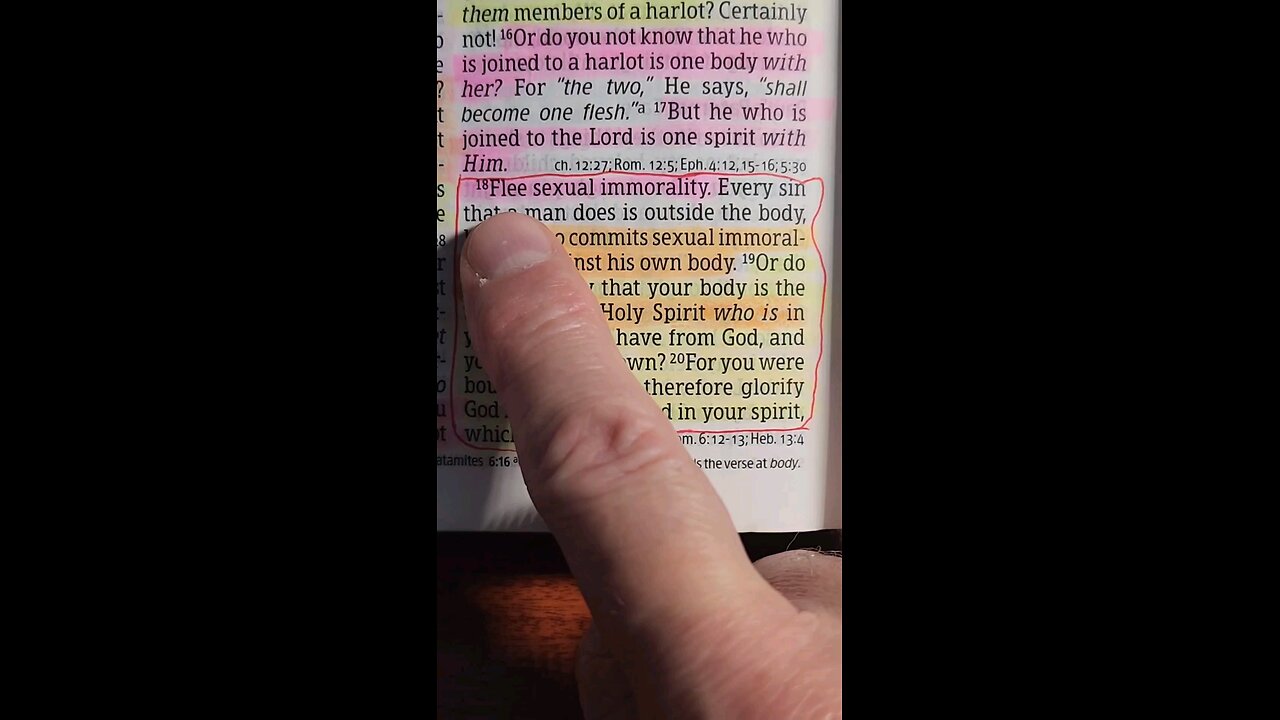 them members of a harlot? Certainly
not! 16Or do you not know that he who
is joined to a harlot is one body with
her? For "the two," He says, "shall
become one flesh."a 17But he who is
joined to the Lord is one spirit with
Him. ch. 12:27; Rom. 12:5; Eph. 4:12, 15-16; 5:30
18Flee sexual immorality. Every sin
that a man does is outside the body,
commits sexual immoral-
his own body. 19Or do
that your body is the
Holy Spirit who is in
have from God, and
20For you were
therefore glorify
God in your spirit,
6:12-13; Heb. 13:4
6:16 a the verse at body.